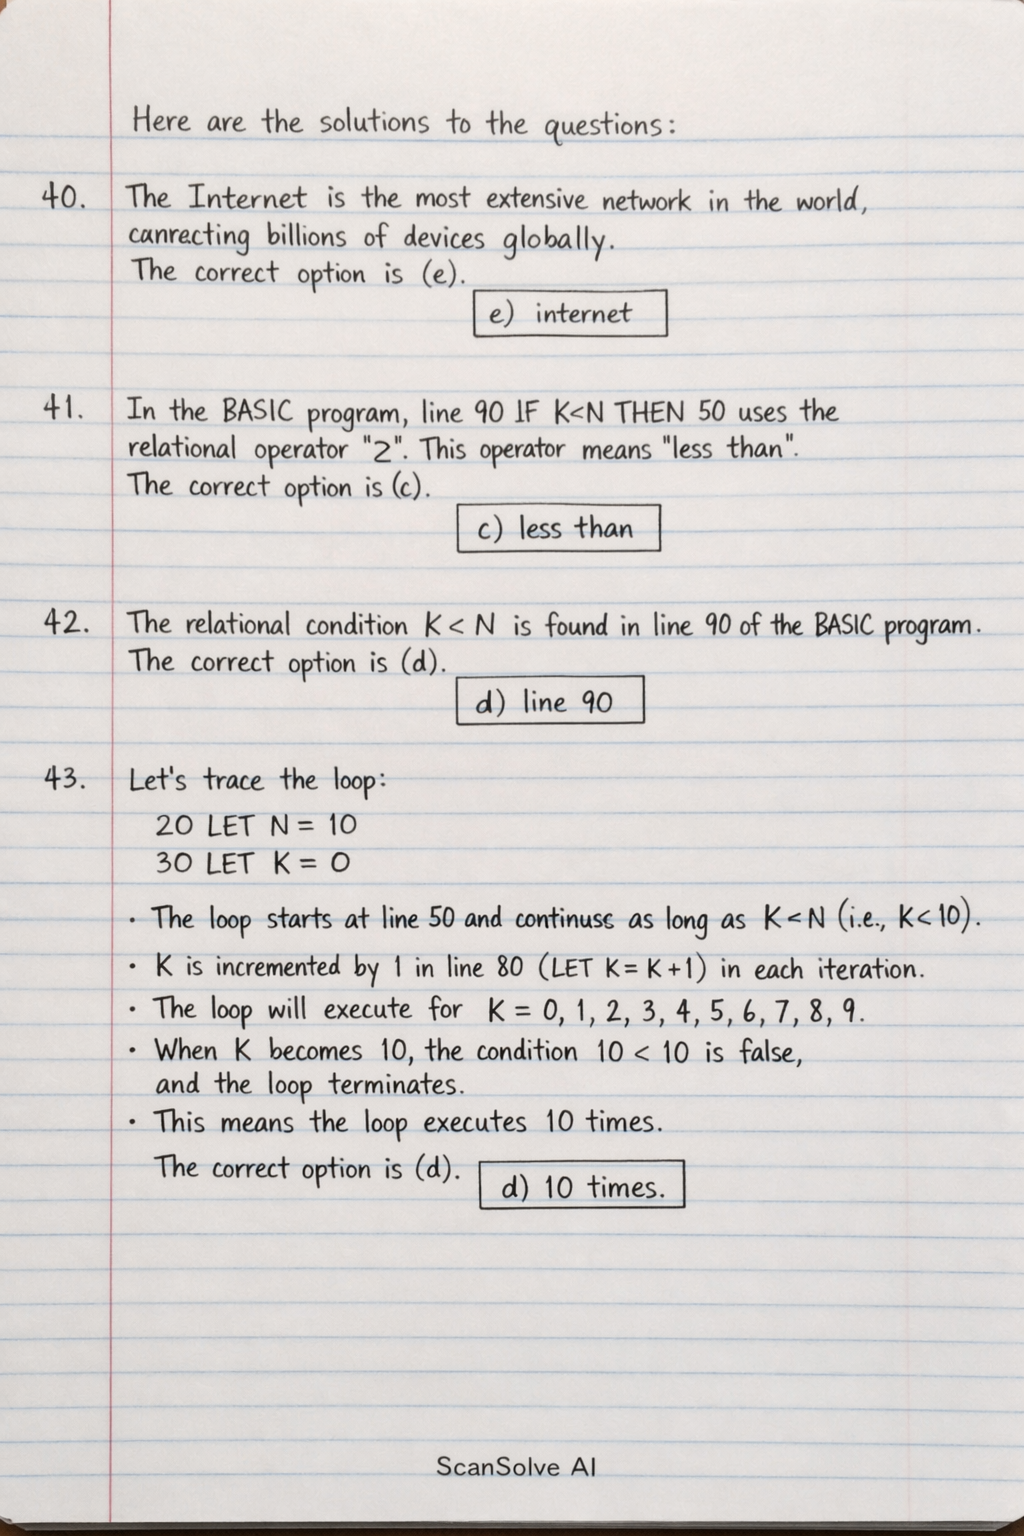 Here are the solutions to the questions:
40. The Internet is the most extensive network in the world,
canrecting billions of devices globally.
The correct option is (e).
e) internet
41. In the BASIC program, line 90 IF K<N THEN 50 uses the
relational operator "2". This operator means "less than".
The correct option is (c).
c) less than
42. The relational condition K < N is found in line 90 of the BASIC program.
The correct option is (d).
d) line 90
43. Let's trace the loop:
20 LET N = 10
30 LET K = 0
• The loop starts at line 50 and continuse as long as K<N (i.e., K<10).
• K is incremented by 1 in line 80 (LET K = K+1) in each iteration.
• The loop will execute for K = 0, 1, 2, 3, 4, 5, 6, 7, 8, 9.
• When K becomes 10, the condition 10 < 10 is false,
and the loop terminates.
• This means the loop executes 10 times.
The correct option is (d).
d) 10 times.
ScanSolve AI